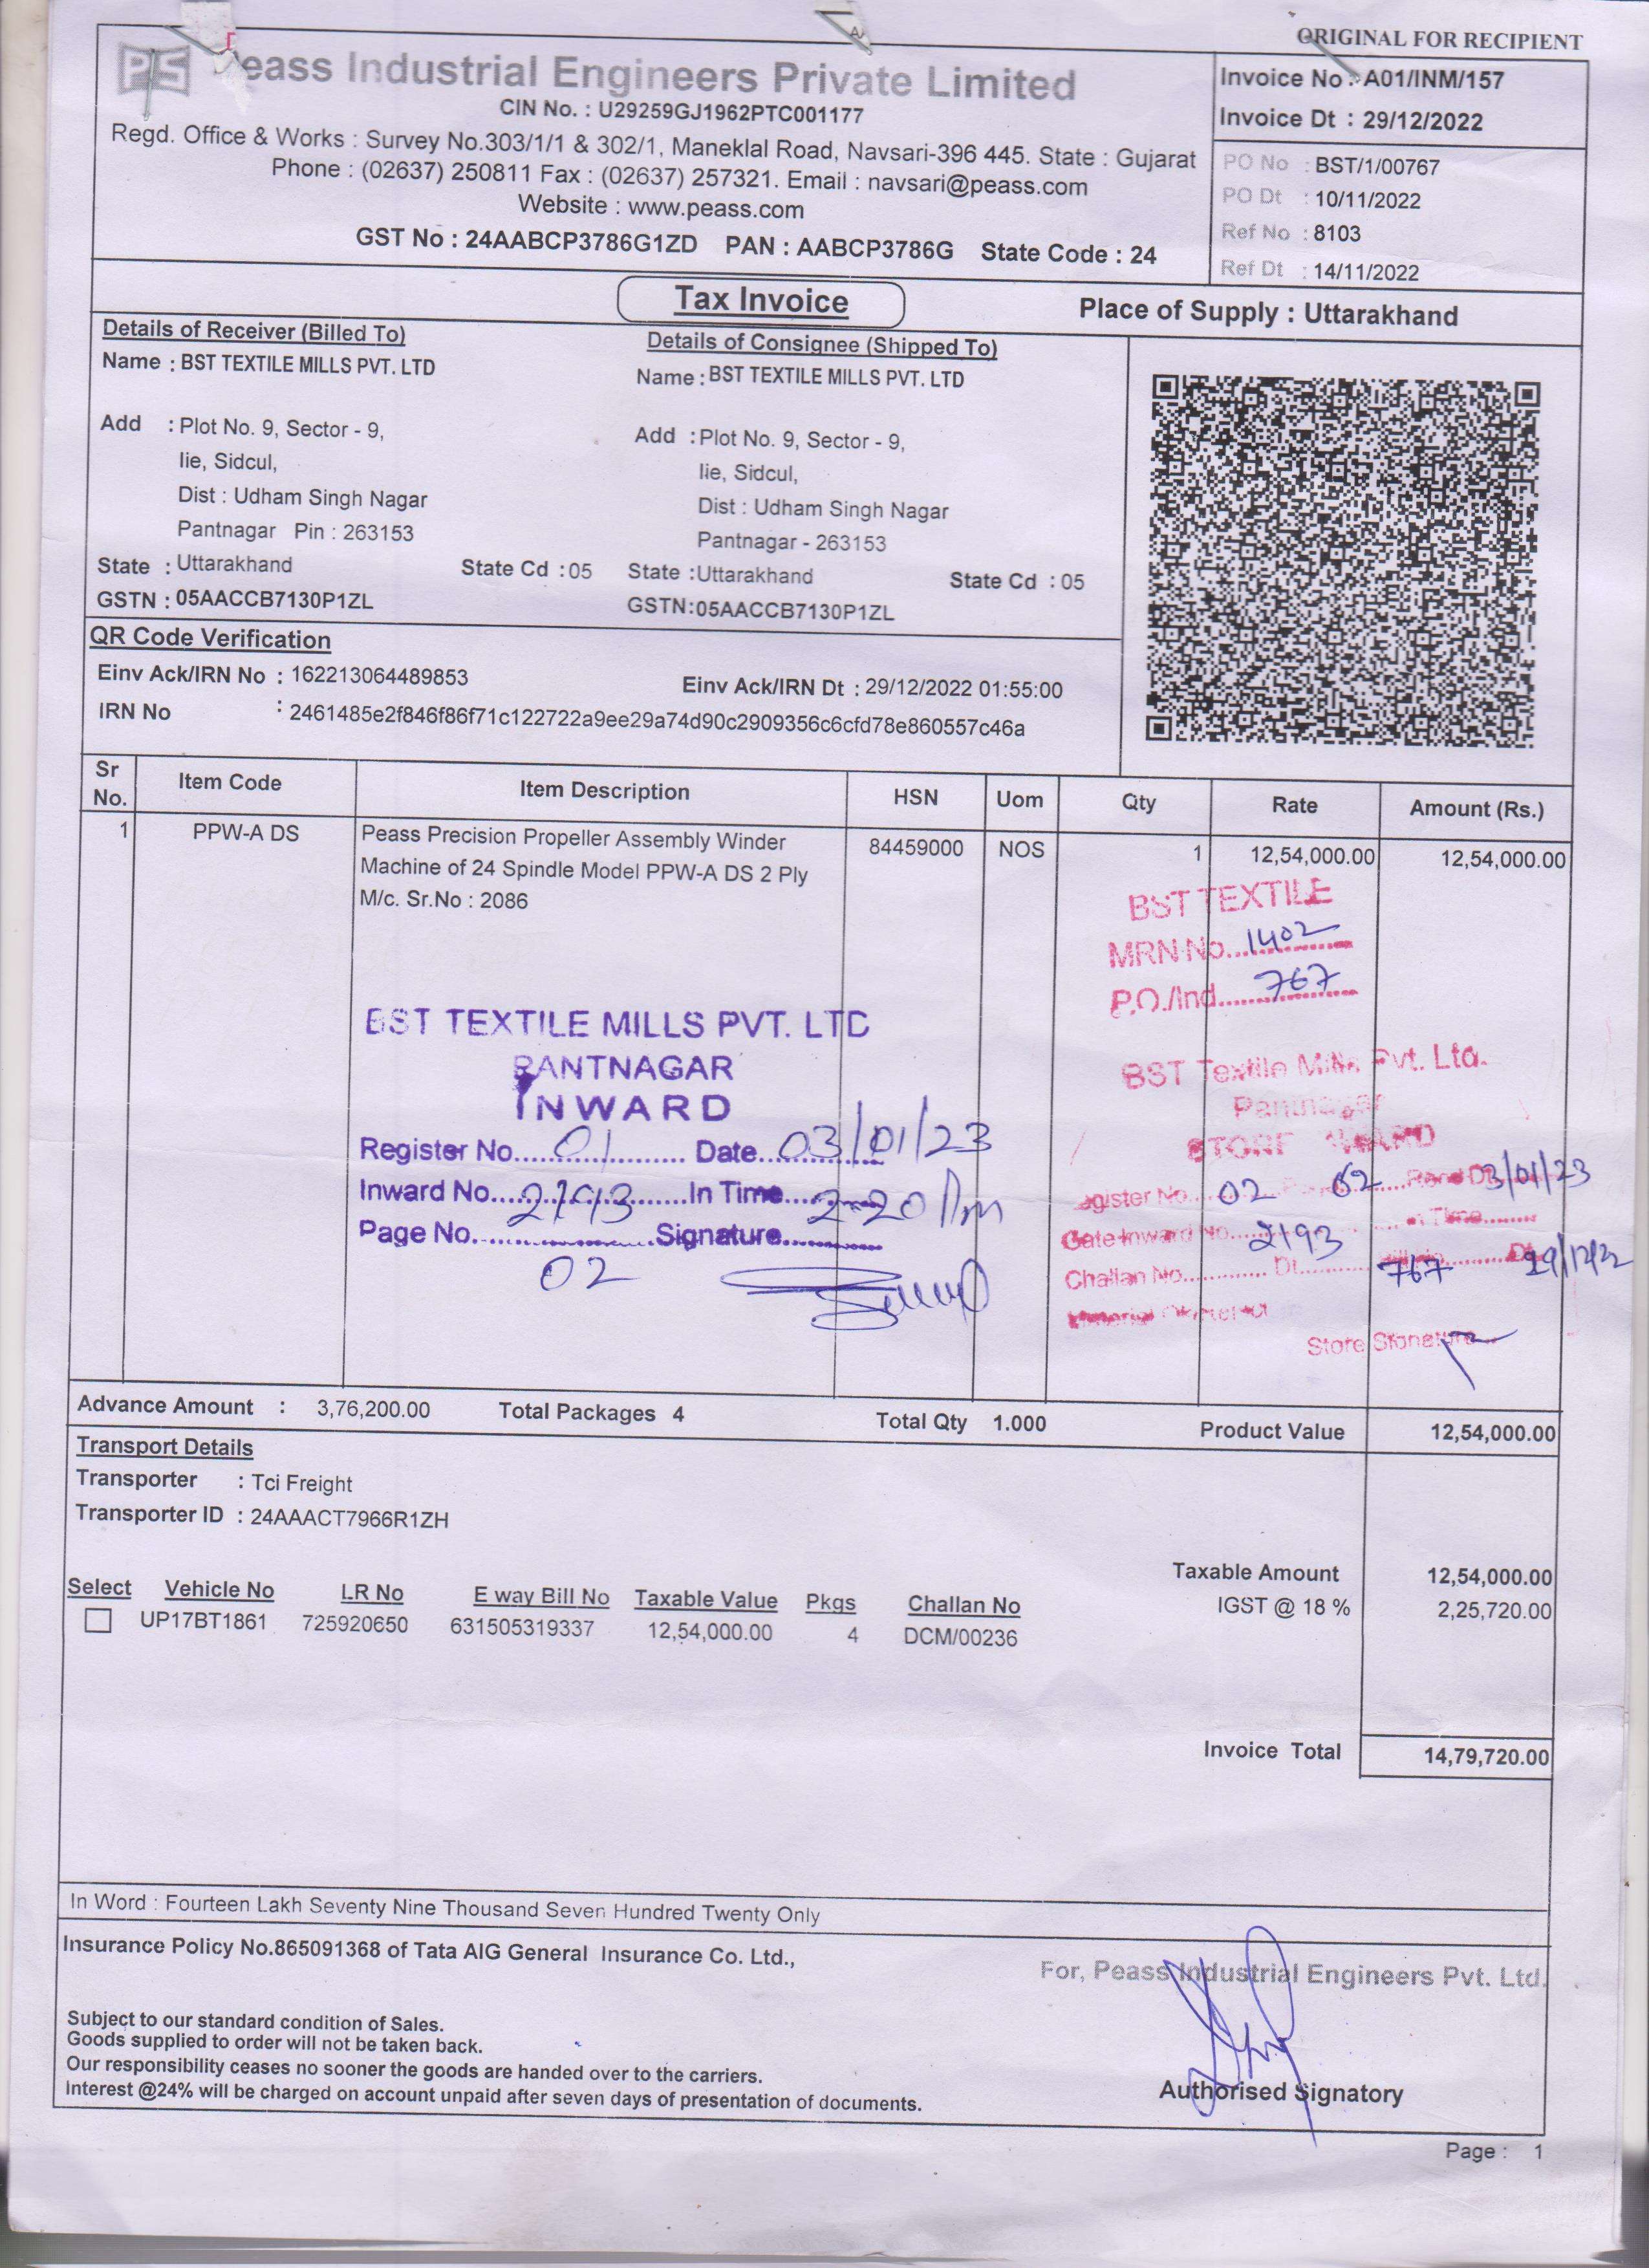 ORIGINAL FOR RECIPIENT
PS Peass Industrial Engineers Private Limited
CIN No. : U29259GJ1962PTC001177
Regd. Office & Works : Survey No.303/1/1 & 302/1, Maneklal Road, Navsari-396 445. State : Gujarat
Phone : (02637) 250811 Fax : (02637) 257321. Email : navsari@peass.com
Website : www.peass.com
GST No : 24AABCP3786G1ZD PAN : AABCP3786G State Code : 24
Invoice No : A01/INM/157
Invoice Dt : 29/12/2022
PO No : BST/1/00767
PO Dt : 10/11/2022
Ref No : 8103
Ref Dt : 14/11/2022
Tax Invoice
Place of Supply : Uttarakhand
Details of Receiver (Billed To)
Name : BST TEXTILE MILLS PVT. LTD
Add : Plot No. 9, Sector - 9,
Iie, Sidcul,
Dist : Udham Singh Nagar
Pantnagar Pin : 263153
State : Uttarakhand State Cd : 05
GSTN : 05AACCB7130P1ZL
Details of Consignee (Shipped To)
Name : BST TEXTILE MILLS PVT. LTD
Add : Plot No. 9, Sector - 9,
Iie, Sidcul,
Dist : Udham Singh Nagar
Pantnagar - 263153
State : Uttarakhand State Cd : 05
GSTN: 05AACCB7130P1ZL
QR Code Verification
Einv Ack/IRN No : 162213064489853 Einv Ack/IRN Dt : 29/12/2022 01:55:00
IRN No : 2461485e2f846f86f71c122722a9ee29a74d90c2909356c6cfd78e860557c46a
Sr No. Item Code Item Description HSN Uom Qty Rate Amount (Rs.)
1 PPW-A DS Peass Precision Propeller Assembly Winder 84459000 NOS 1 12,54,000.00 12,54,000.00
Machine of 24 Spindle Model PPW-A DS 2 Ply
M/c. Sr.No : 2086
BST TEXTILE
MRN No. 1402
P.O./Ind. 767
BST TEXTILE MILLS PVT. LTD
PANTNAGAR
INWARD
Register No. 01 Date 03/01/23
Inward No. 2193 In Time 2-20 Pm
Page No. 02 Signature
BST Textile Mills Pvt. Ltd.
Pantnagar
STORE INWARD
Register No. 02 62 3/01/23
Gate Inward No. 2193 In Time
Challan No. Dt. 767 Dt. 29/12/22
Store Signature
Advance Amount : 3,76,200.00 Total Packages 4 Total Qty 1.000 Product Value 12,54,000.00
Transport Details
Transporter : Tci Freight
Transporter ID : 24AAACT7966R1ZH
Taxable Amount 12,54,000.00
IGST @ 18 % 2,25,720.00
Select Vehicle No LR No E way Bill No Taxable Value Pkgs Challan No
UP17BT1861 725920650 631505319337 12,54,000.00 4 DCM/00236
Invoice Total 14,79,720.00
In Word : Fourteen Lakh Seventy Nine Thousand Seven Hundred Twenty Only
Insurance Policy No.865091368 of Tata AIG General Insurance Co. Ltd.,
For, Peass Industrial Engineers Pvt. Ltd.
Subject to our standard condition of Sales.
Goods supplied to order will not be taken back.
Our responsibility ceases no sooner the goods are handed over to the carriers.
Interest @24% will be charged on account unpaid after seven days of presentation of documents.
Authorised Signatory
Page : 1